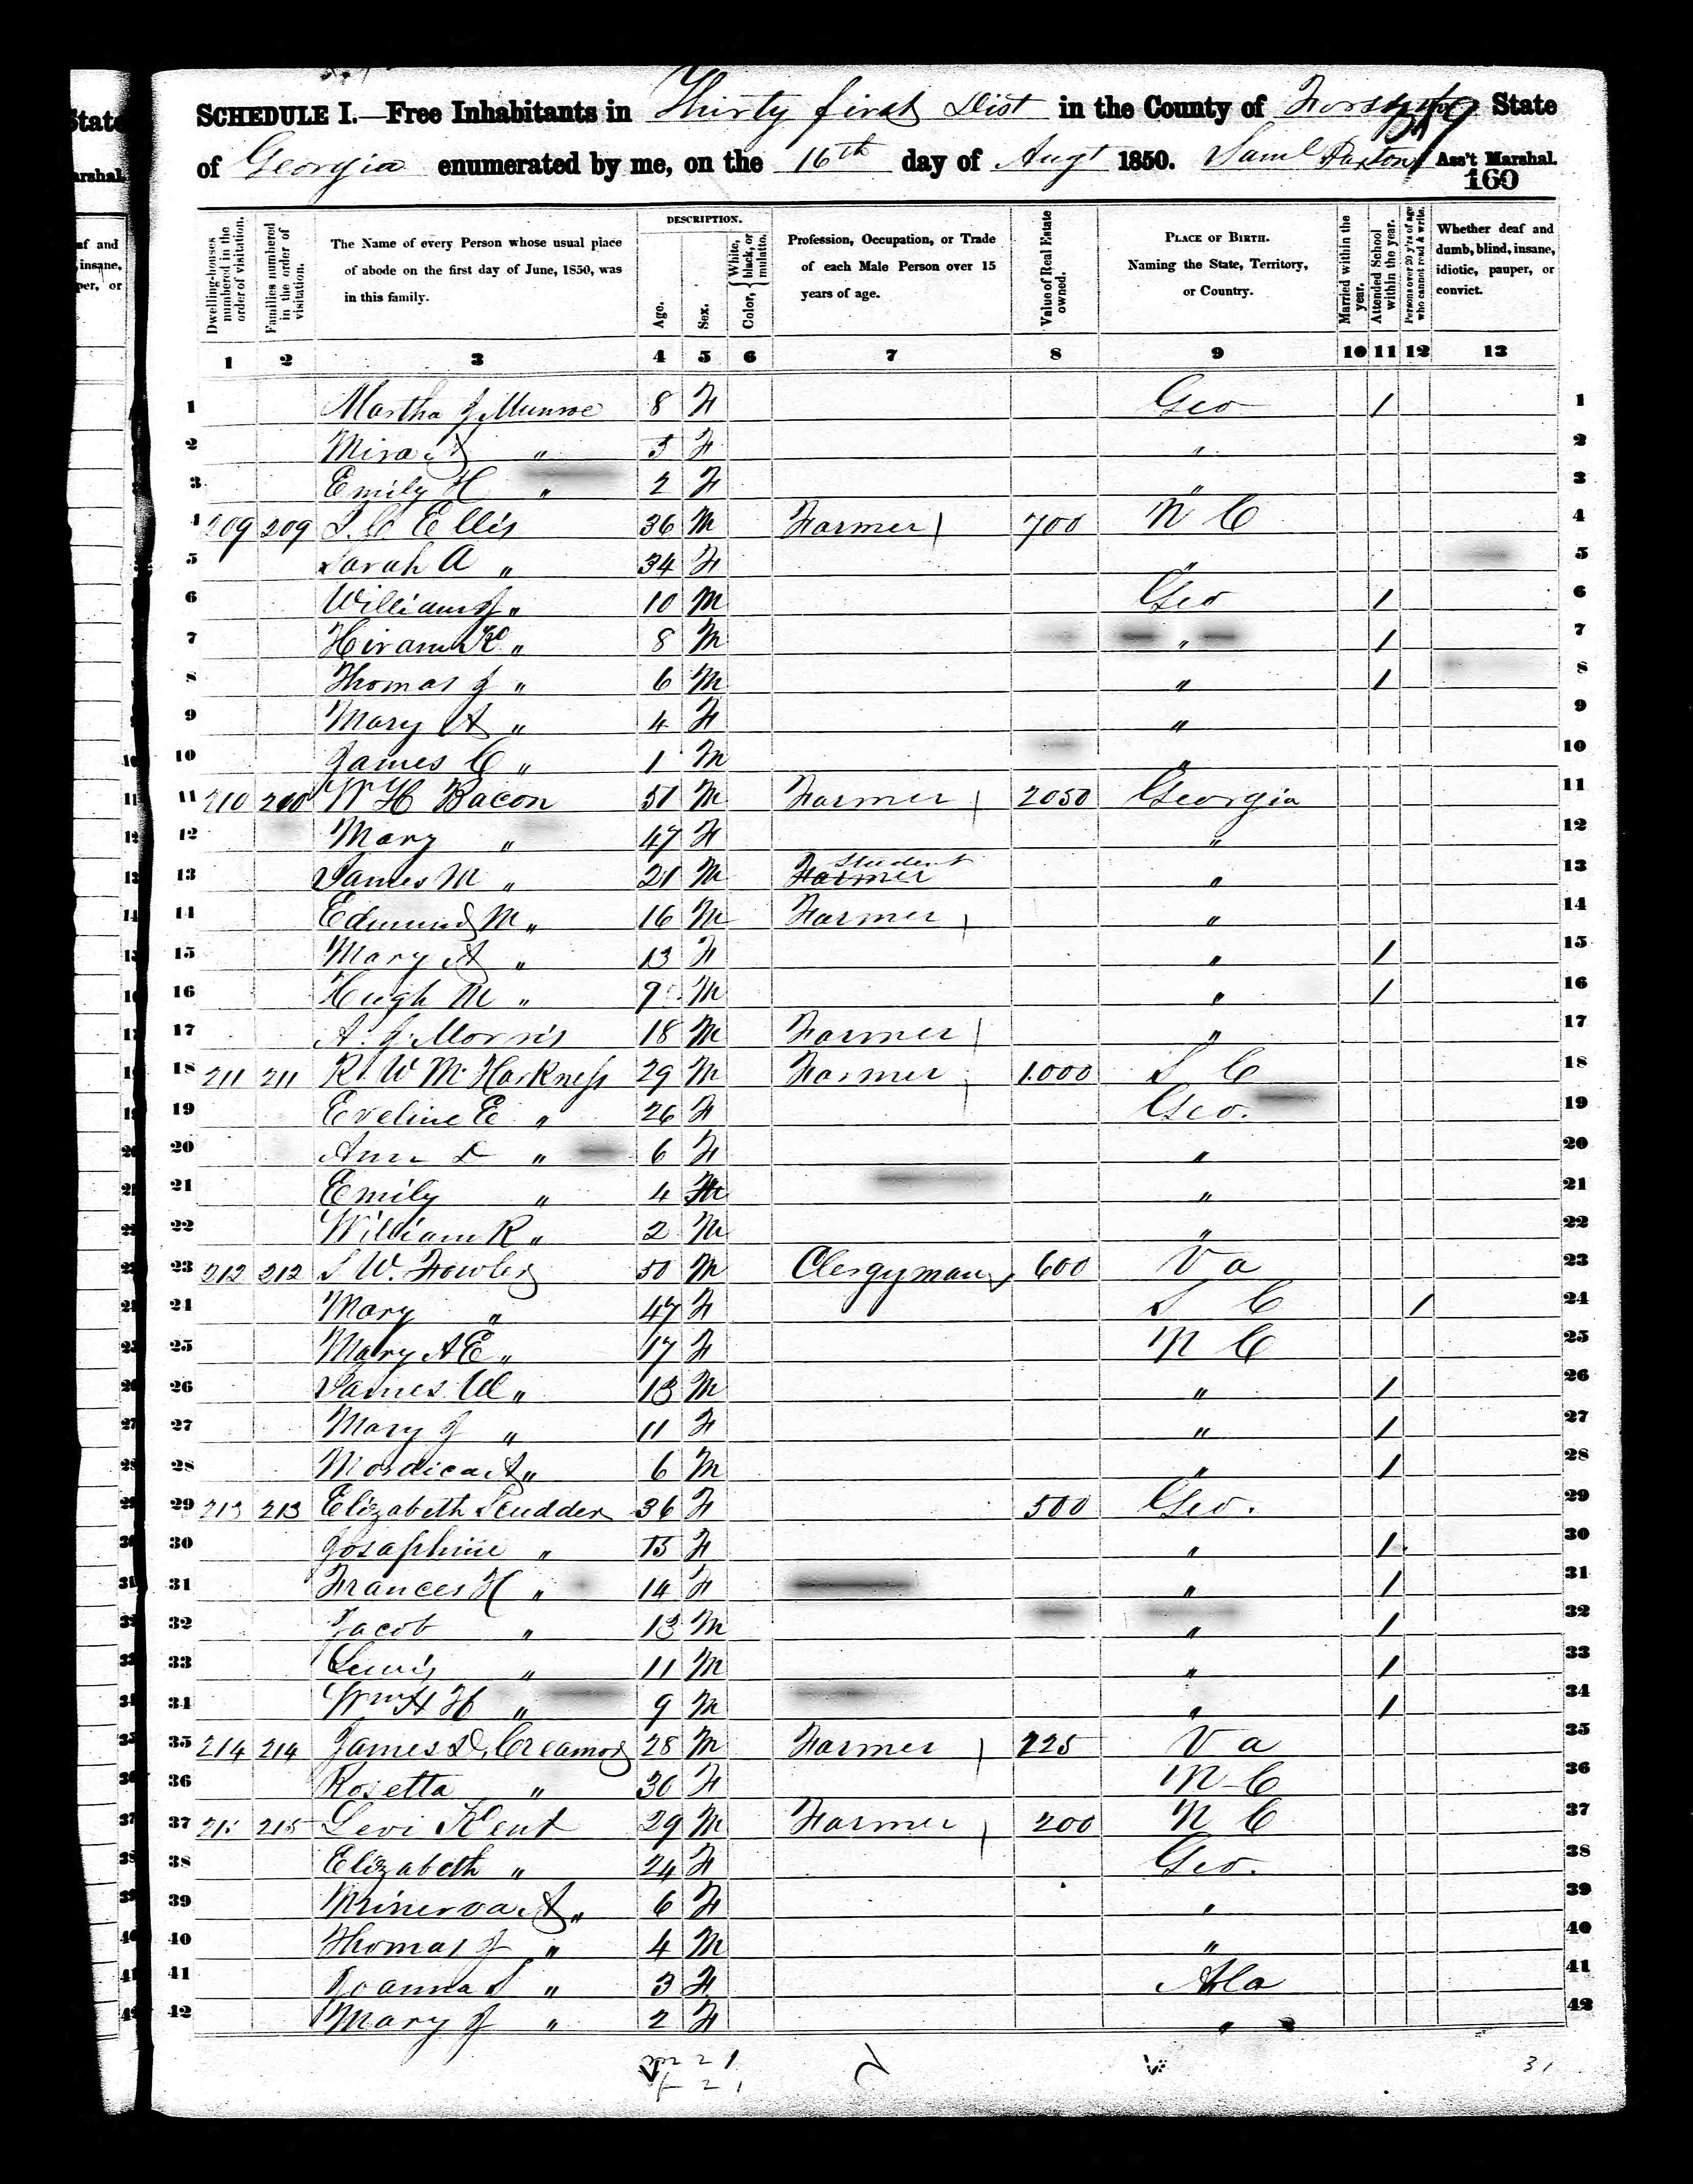 SCHEDULE I.—Free Inhabitants in Thirty first Dist in the County of Forsyth State
of Georgia enumerated by me, on the 16th day of Augt 1850. Saml Paxton Ass't Marshal.
160
Dwelling-houses numbered in the order of visitation.
Families numbered in the order of visitation.
The Name of every Person whose usual place of abode on the first day of June, 1850, was in this family.
DESCRIPTION.
Age.
Sex.
Color, { White, black, or mulatto.
Profession, Occupation, or Trade of each Male Person over 15 years of age.
Value of Real Estate owned.
PLACE OF BIRTH. Naming the State, Territory, or Country.
Married within the year.
Attended School within the year.
Persons over 20 y'rs of age who cannot read & write.
Whether deaf and dumb, blind, insane, idiotic, pauper, or convict.
1 2 3 4 5 6 7 8 9 10 11 12 13
1 Martha J Munroe 8 F Geo / 1
2 Mira A " 5 F " 2
3 Emily H " 2 F " 3
4 209 209 S. C Ellis 36 M Farmer 700 N C 4
5 Sarah A " 34 F " 5
6 William J " 10 M Geo / 6
7 Hiram R " 8 M " / 7
8 Thomas J " 6 M " / 8
9 Mary A " 4 F " 9
10 James C " 1 M " 10
11 210 210 W H Bacon 51 M Farmer 2050 Georgia 11
12 Mary " 47 F " 12
13 James M " 21 M Farmer Student " 13
14 Edmund M " 16 M Farmer " 14
15 Mary A " 13 F " / 15
16 Hugh M " 9 M " / 16
17 A. J. Morris 18 M Farmer " 17
18 211 211 R. W Mc Harkness 29 M Farmer 1.000 S C 18
19 Eveline E " 26 F Geo. 19
20 Ann D " 6 F " 20
21 Emily " 4 " 21
22 William R " 2 M " 22
23 212 212 S W. Fowler 50 M Clergyman 600 Va 23
24 Mary " 47 F S C / 24
25 Mary A E " 17 F N C 25
26 James W " 13 M " / 26
27 Mary J " 11 F " / 27
28 Mordica A " 6 M " / 28
29 213 213 Elizabeth Scudder 36 F 500 Geo. 29
30 Josaphine " 15 F " / 30
31 Frances H " 14 F " / 31
32 Jacob " 13 M " / 32
33 Lewis " 11 M " / 33
34 Wm H H " 9 M " / 34
35 214 214 James D. Creamor 28 M Farmer 225 Va 35
36 Rosetta " 30 F N C 36
37 215 Levi Kent 29 M Farmer 200 N C 37
38 Elizabeth " 24 F Geo. 38
39 Minerva A " 6 F " 39
40 Thomas J " 4 M " 40
41 Joanna S " 3 F Ala 41
42 Mary J " 2 F " 42
m 21
f 21
31